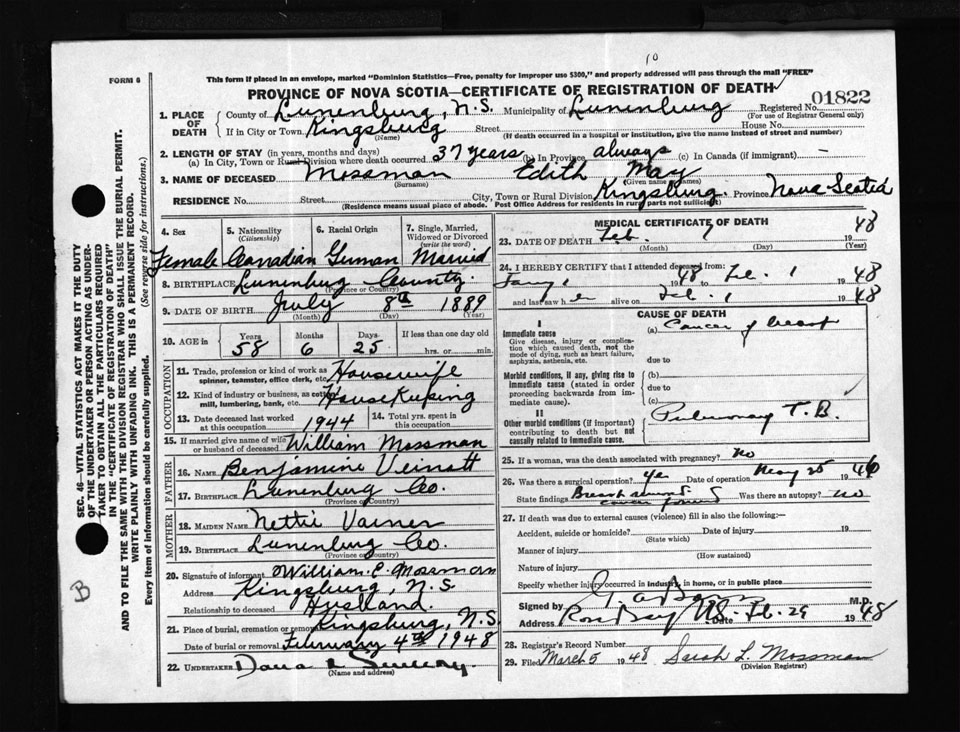 10
FORM 6
This form if placed in an envelope, marked "Dominion Statistics—Free, penalty for improper use $300," and properly addressed will pass through the mail "FREE"
PROVINCE OF NOVA SCOTIA—CERTIFICATE OF REGISTRATION OF DEATH
01822
1. PLACE OF DEATH County of Lunenburg, N.S. Municipality of Lunenburg Registered No. (For use of Registrar General only)
If in City or Town Kingsburg Street House No.
(Name) (If death occurred in a hospital or institution, give the name instead of street and number)
2. LENGTH OF STAY (in years, months and days)
(a) In City, Town or Rural Division where death occurred 37 years (b) In Province always (c) In Canada (if immigrant) —
3. NAME OF DECEASED Mossman Edith May
(Surname) (Given name or names)
RESIDENCE No. Street City, Town or Rural Division Kingsburg. Province Nova Scotia
(Residence means usual place of abode. Post Office Address for residents in rural parts not sufficient)
4. Sex 5. Nationality (Citizenship) 6. Racial Origin 7. Single, Married, Widowed or Divorced (write the word)
Female Canadian German Married
8. BIRTHPLACE Lunenburg County
(Province or Country)
9. DATE OF BIRTH July 8th 1889
(Month) (Day) (Year)
10. AGE in Years Months Days If less than one day
58 6 25 hrs. or min.
OCCUPATION
11. Trade, profession or kind of work as spinner, teamster, office clerk, etc. Housewife
12. Kind of industry or business, as cotton mill, lumbering, bank, etc. House Keeping
13. Date deceased last worked at this occupation 1944 14. Total yrs. spent in this occupation
15. If married give name of wife or husband of deceased William Mossman
FATHER
16. Name Benjamine Veinott
17. Birthplace Lunenburg Co.
(Province or Country)
MOTHER
18. Maiden Name Nettie
19. Birthplace Lunenburg Co.
(Province or Country)
20. Signature of informant William E. Mossman
Address Kingsburg, N.S
Relationship to deceased Husband.
21. Place of burial, cremation or removal Kingsburg, N.S
Date of burial or removal February 4th 1948
22. UNDERTAKER Dana L Sweeny
(Name and address)
MEDICAL CERTIFICATE OF DEATH
23. DATE OF DEATH Feb. 1948
(Month) (Day) (Year)
24. I HEREBY CERTIFY that I attended deceased from:
Jany 1 1948 to Feb. 1 1948
and last saw her alive on Feb. 1 1948
CAUSE OF DEATH
I
Immediate cause
Give disease, injury or complication which caused death, not the mode of dying, such as heart failure, asphyxia, asthenia, etc.
(a) Cancer of breast
due to
Morbid conditions, if any, giving rise to immediate cause (stated in order proceeding backwards from immediate cause).
(b)
due to
(c)
II
Other morbid conditions (if important) contributing to death but not causally related to immediate cause.
Pulmonary T.B.
25. If a woman, was the death associated with pregnancy? No
26. Was there a surgical operation? Yes Date of operation May 25 1946
State findings Breast removed cancer found Was there an autopsy? No
27. If death was due to external causes (violence) fill in also the following:
Accident, suicide or homicide? Date of injury 19
(State which)
Manner of injury
(How sustained)
Nature of injury
Specify whether injury occurred in industry, in home, or in public place
Signed by M.D.
Address Rose Bay N.S. Date Feb. 29 1948
28. Registrar's Record Number
29. Filed March 5 1948 Sarah L. Mossman
(Division Registrar)
SEC. 46—VITAL STATISTICS ACT MAKES IT THE DUTY
OF THE UNDERTAKER OR PERSON ACTING AS UNDERTAKER TO OBTAIN ALL THE PARTICULARS REQUIRED
IN THE "CERTIFICATE OF REGISTRATION OF DEATH"
AND TO FILE THE SAME WITH THE DIVISION REGISTRAR WHO SHALL ISSUE THE BURIAL PERMIT.
WRITE PLAINLY WITH UNFADING INK. THIS IS A PERMANENT RECORD.
Every item of Information should be carefully supplied. (See reverse side for instructions.)
B